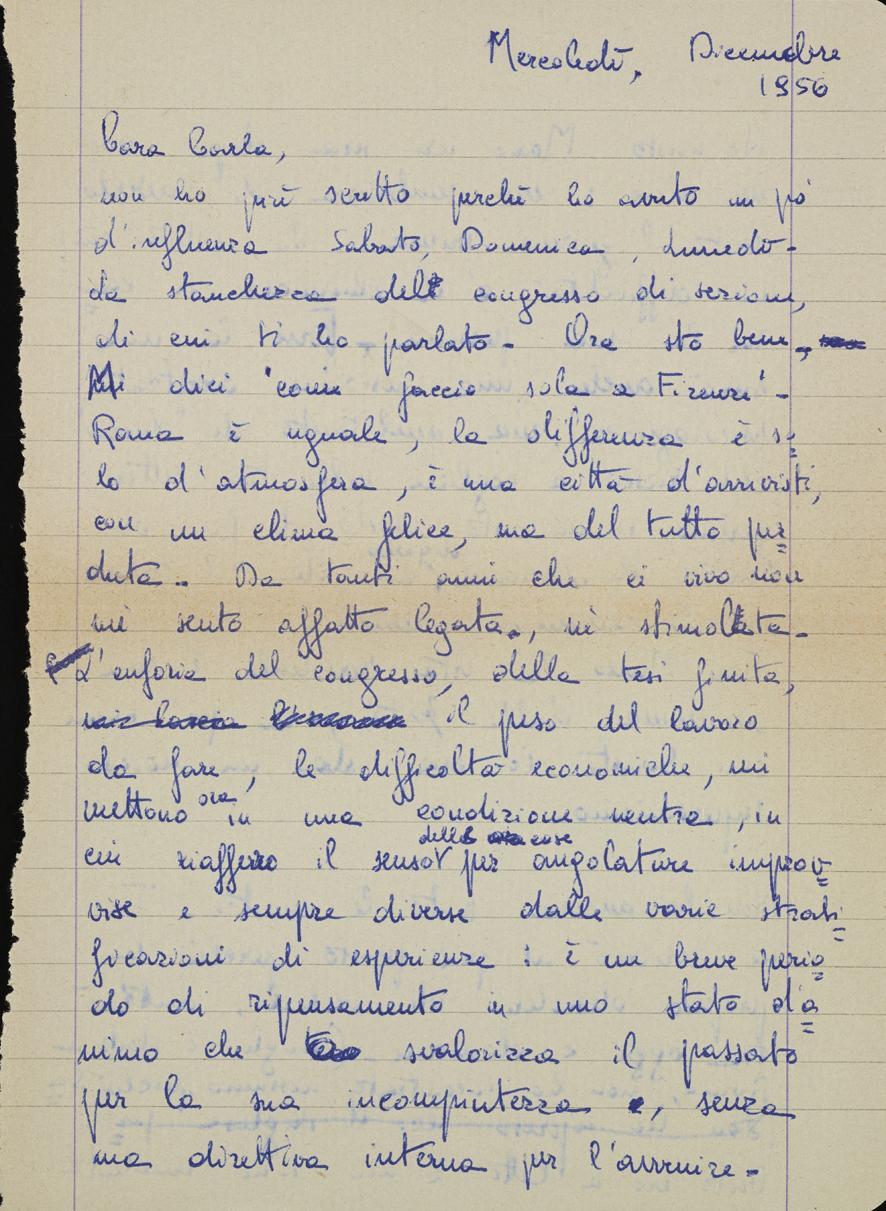 Mercoledì, Dicembre
1956
Cara Carla,
non ho più scritto perchè ho avuto un pò
d'influenza Sabato, Domenica, Lunedì -
La stanchezza del congresso di sezione,
di cui ti ho parlato - Ora sto bene,
Mi dici "come faccio sola a Firenze" -
Roma è uguale, la differenza è so=
lo d'atmosfera, è una città d'arrivisti,
con un clima felice, ma del tutto per=
duta - Da tanti anni che ci vivo non
mi sento affatto legata, nè stimolata -
L'euforia del congresso, della tesi finita,
il peso del lavoro
da fare, le difficoltà economiche, mi
mettono ora in una condizione neutra, in
delle cose
cui riafferro il senso per angolature improv=
vise e sempre diverse dalle varie strati=
ficazioni di esperienze : è un breve perio=
do di ripensamento in uno stato d'a=
nimo che svalorizza il passato
per la sua incompiutezza, senza
una direttiva interna per l'avvenire -